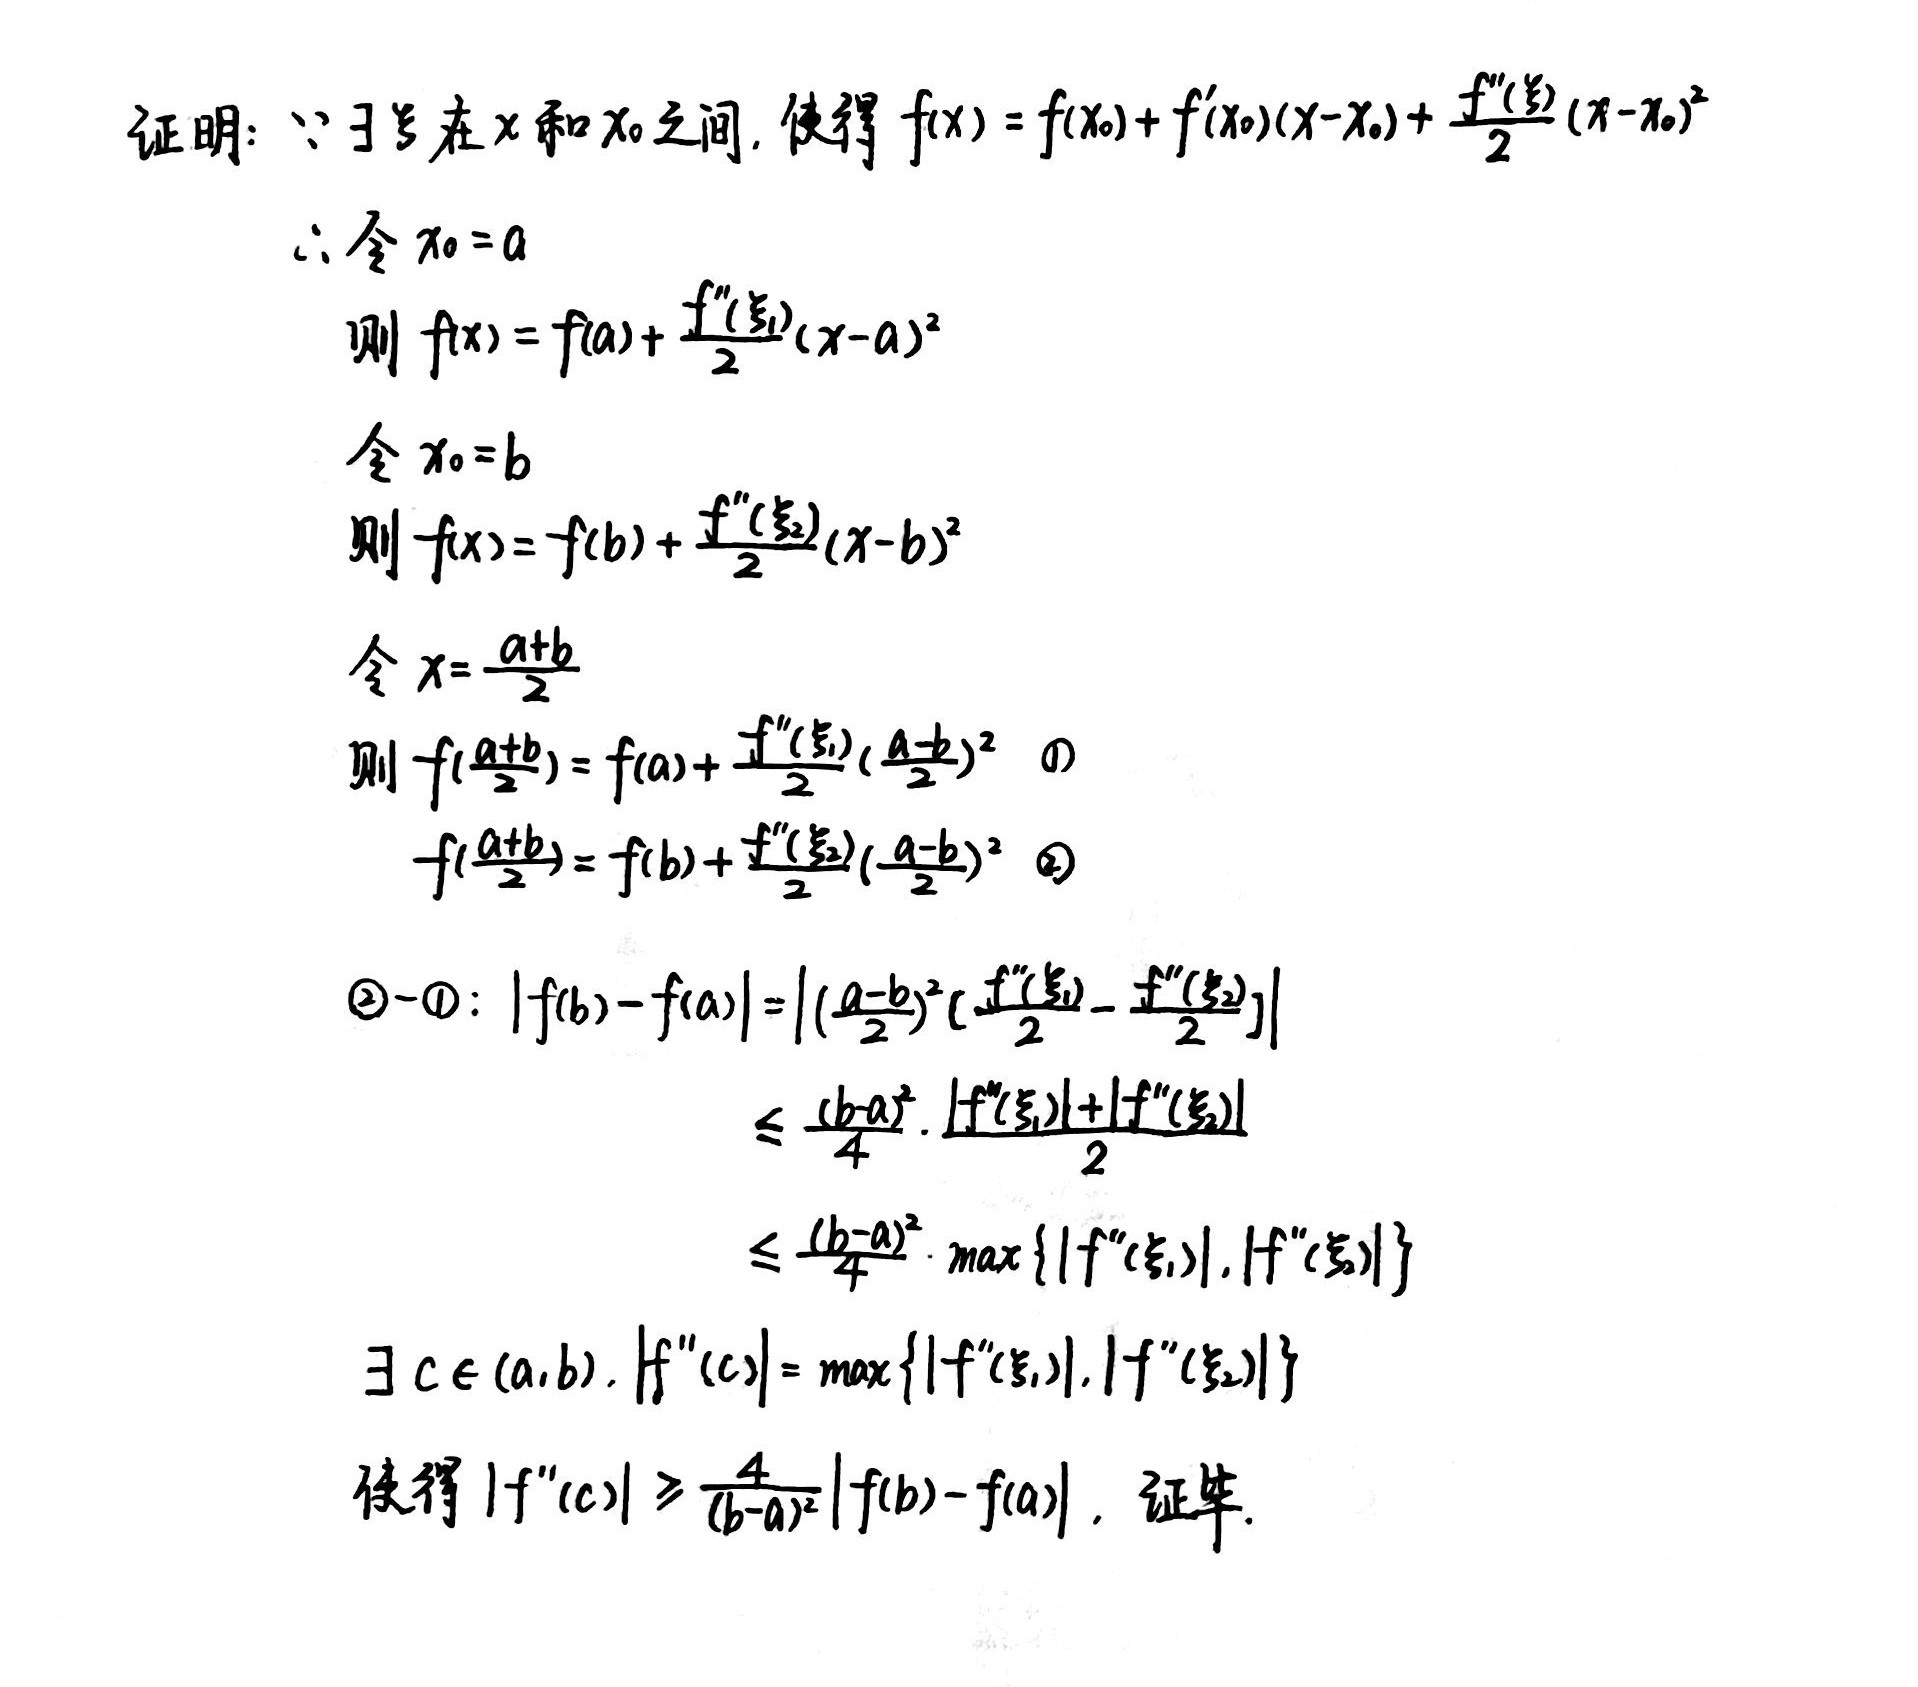 证明: ∵ ∃ξ 在 x 和 x₀ 之间, 使得 f(x) = f(x₀) + f′(x₀)(x-x₀) + \frac{f″(ξ)}{2}(x-x₀)²
∴ 令 x₀ = a
则 f(x) = f(a) + \frac{f″(ξ₁)}{2}(x-a)²
令 x₀ = b
则 f(x) = f(b) + \frac{f″(ξ₂)}{2}(x-b)²
令 x = \frac{a+b}{2}
则 f(\frac{a+b}{2}) = f(a) + \frac{f″(ξ₁)}{2}(\frac{a-b}{2})² ①
f(\frac{a+b}{2}) = f(b) + \frac{f″(ξ₂)}{2}(\frac{a-b}{2})² ②
②-①: |f(b) - f(a)| = |(\frac{a-b}{2})²[\frac{f″(ξ₁)}{2} - \frac{f″(ξ₂)}{2}]|
≤ \frac{(b-a)²}{4} · \frac{|f″(ξ₁)| + |f″(ξ₂)|}{2}
≤ \frac{(b-a)²}{4} · max{|f″(ξ₁)|, |f″(ξ₂)|}
∃ c ∈ (a,b), |f″(c)| = max{|f″(ξ₁)|, |f″(ξ₂)|}
使得 |f″(c)| ≥ \frac{4}{(b-a)²}|f(b) - f(a)|, 证毕.